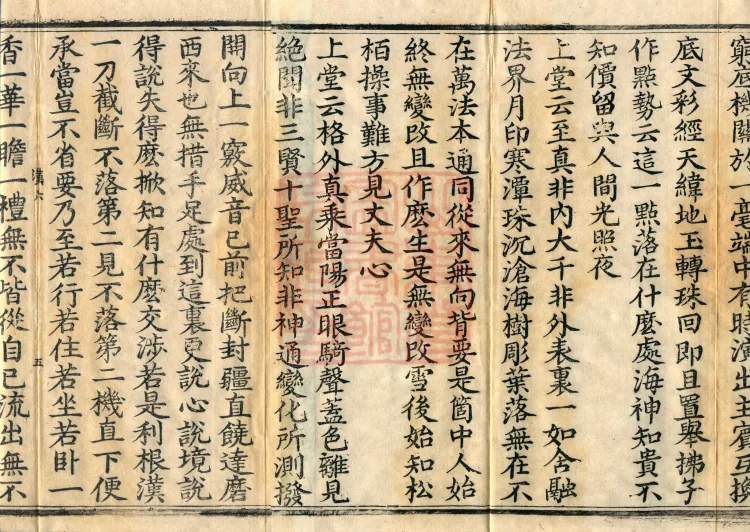 窮產機關於一毫端中有眼演出主賓互換
底文彩經天緯地玉轉珠回即且置舉拂子
作點勢云這一點落在什麼處海神知貴不
知價留與人間光照夜
上堂云至真非內大千非外表裏一如含融
法界月印寒潭珠沉滄海樹彫葉落無在不
在萬法本通同從來無向背要是箇中人始
終無變改且作麼生是無變改雪後始知松
栢操事難方見丈夫心
上堂云格外真乘當陽正眼騎聲蓋色離見
絕聞非三賢十聖所知非神通變化所測撥
開向上一竅威音已前把斷封疆直饒達磨
西來也無措手足處到這裏更說心說境說
得說失得麼掀知有什麼交涉若是利根漢
一刀截斷不落第二見不落第二機直下便
承當豈不省要乃至若行若住若坐若卧一
香一華一瞻一禮無不皆從自己流出無不
五